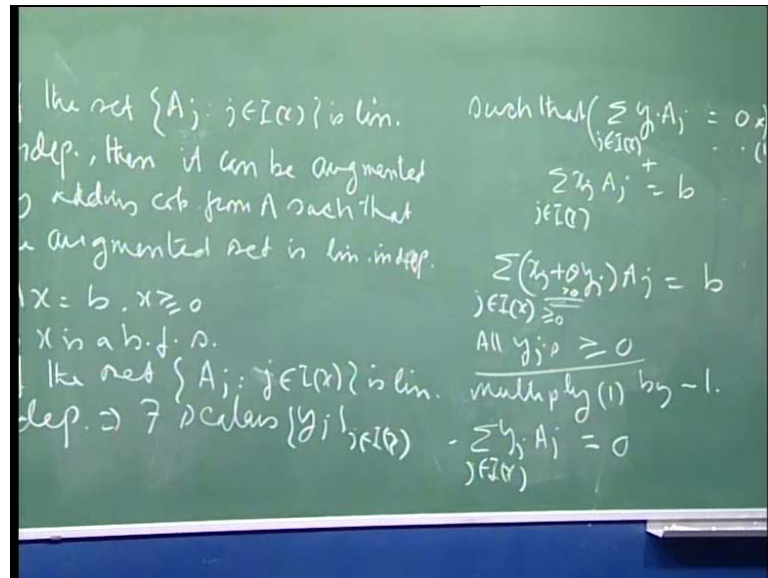 the set {A_j : j∈I(x)} is lin.
ndep., then it can be augmented
adding cols from A such that
augmented set is lin. indep.
x = b, x ≥ 0
x is a b.f.s.
the set {A_j : j∈I(x)} is lin.
dep. ⇒ ∃ scalars {y_j}_{j∈I(x)}
such that ( ∑_{j∈I(x)} y_j A_j = 0 x
. . (1
+
∑_{j∈I(x)} x_j A_j = b
∑_{j∈I(x)} (x_j + θy_j) A_j = b
≥0
>0
All y_js ≥ 0
multiply (1) by -1.
- ∑_{j∈I(x)} y_j A_j = 0